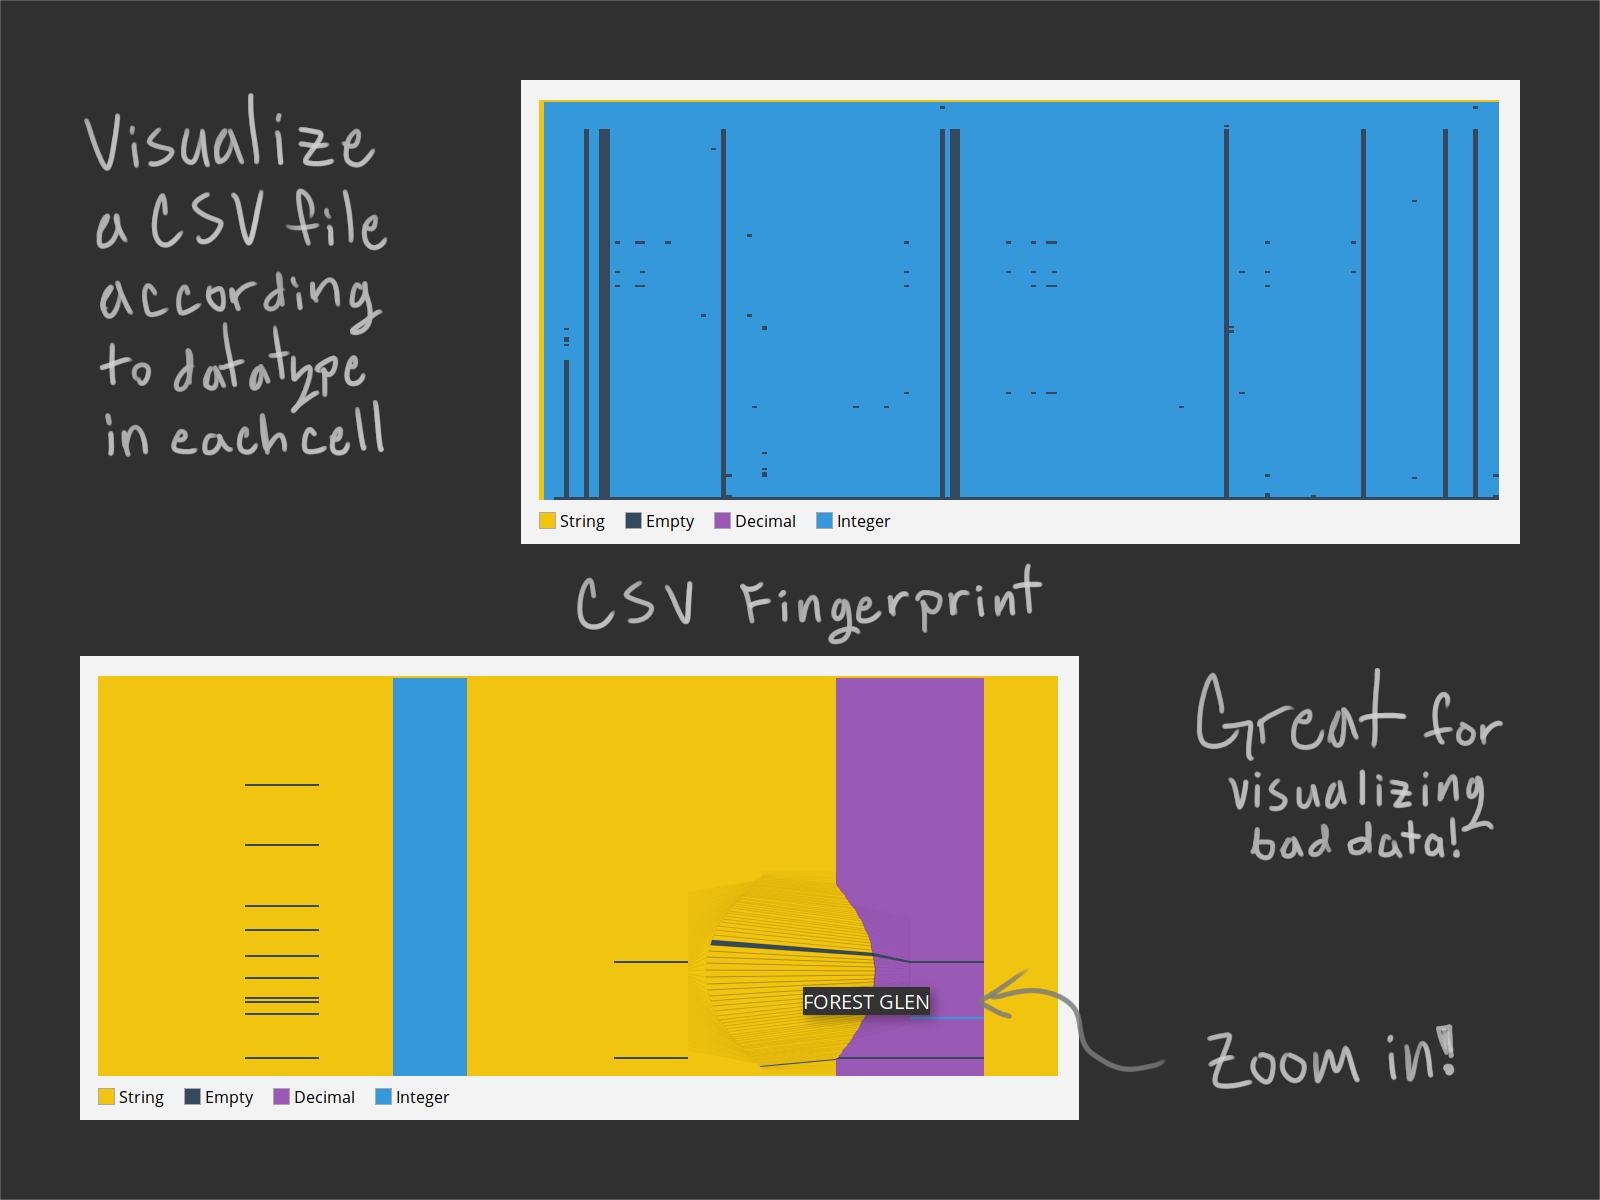 Visualize
a CSV file
according
to datatype
in each cell
String Empty Decimal Integer
CSV Fingerprint
FOREST GLEN
String Empty Decimal Integer
Great for
visualizing
bad data!
Zoom in!